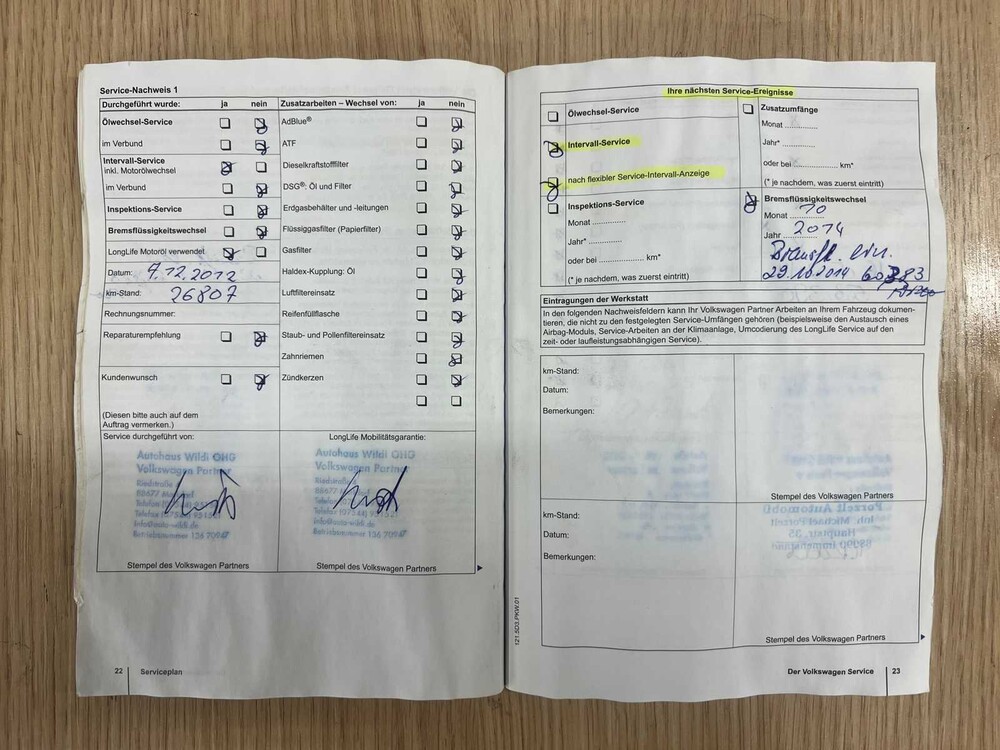 Service-Nachweis 1
Durchgeführt wurde: ja nein
Ölwechsel-Service
im Verbund
Intervall-Service
inkl. Motorölwechsel
im Verbund
Inspektions-Service
Bremsflüssigkeitswechsel
LongLife Motoröl verwendet
Datum: 7.12.2012
km-Stand: 26807
Rechnungsnummer:
Reparaturempfehlung
Kundenwunsch
(Diesen bitte auch auf dem
Auftrag vermerken.)
Zusatzarbeiten – Wechsel von: ja nein
AdBlue®
ATF
Dieselkraftstofffilter
DSG®: Öl und Filter
Erdgasbehälter und -leitungen
Flüssiggasfilter (Papierfilter)
Gasfilter
Haldex-Kupplung: Öl
Luftfiltereinsatz
Reifenfüllflasche
Staub- und Pollenfiltereinsatz
Zahnriemen
Zündkerzen
Service durchgeführt von:
Autohaus Wildi OHG
Volkswagen Partner
Stempel des Volkswagen Partners
LongLife Mobilitätsgarantie:
Autohaus Wildi OHG
Volkswagen Partner
Stempel des Volkswagen Partners
22 Serviceplan
Ihre nächsten Service-Ereignisse
Ölwechsel-Service
Intervall-Service
nach flexibler Service-Intervall-Anzeige
Inspektions-Service
Monat
Jahr*
oder bei km*
(* je nachdem, was zuerst eintritt)
Zusatzumfänge
Monat
Jahr*
oder bei km*
(* je nachdem, was zuerst eintritt)
Bremsflüssigkeitswechsel
Monat 10
Jahr 2014
29.10.2014
Eintragungen der Werkstatt
In den folgenden Nachweisfeldern kann Ihr Volkswagen Partner Arbeiten an Ihrem Fahrzeug dokumen-
tieren, die nicht zu den festgelegten Service-Umfängen gehören (beispielsweise den Austausch eines
Airbag-Moduls, Service-Arbeiten an der Klimaanlage, Umcodierung des LongLife Service auf den
zeit- oder laufleistungsabhängigen Service).
km-Stand:
Datum:
Bemerkungen:
Stempel des Volkswagen Partners
km-Stand:
Datum:
Bemerkungen:
Stempel des Volkswagen Partners
121.5D3.PKW.01
Der Volkswagen Service 23